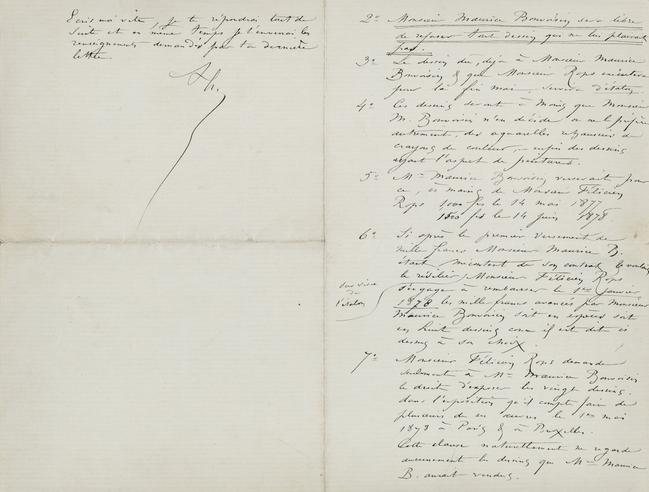 Ecris moi vite, je te répondrai tout de
suite et en même temps je t'enverrai les
renseignements demandés par ta dernière
lettre.
2º Monsieur Maurice Bonvoisin sera libre
de refuser tout dessin qui ne lui plairait
pas.
3º Le dessin du, déjà à Monsieur Maurice
Bonvoisin & que Monsieur Rops exécutera
pour la fin mai, servira d'étalon.
4º Ces dessins seront à moins que Monsieur
M. Bonvoisin n'en décide ou ne le préfère
autrement, des aquarelles rehaussées de
crayons de couleur, – enfin des dessins
ayant l'aspect de peintures.
5º Mr Maurice Bonvoisin verserait pour
ce, ès mains de Monsieur Félicien
Rops 1000 frs le 14 mai 1877
1500 frs le 14 juin 1878
6º Si après le premier versement de
mille francs Monsieur Maurice B.
était mécontent de son contrat & voulait
le résilier, Monsieur Félicien Rops
s'engage à rembourser le 1er janvier
1878 les mille francs avancés par Monsieur
Maurice Bonvoisin soit en espèces soit
en huit dessins comme il est dit ci
dessus à son choix.
7º Monsieur Félicien Rops demande
seulement à Mr Maurice Bonvoisin
le droit d'exposer les vingt dessins
dans l'exposition qu'il compte faire de
plusieurs de ses œuvres le 1er mai
1878 à Paris & à Bruxelles.
Cette clause naturellement ne regarde
aucunement les dessins que Mr Maurice
B. aurait vendus.